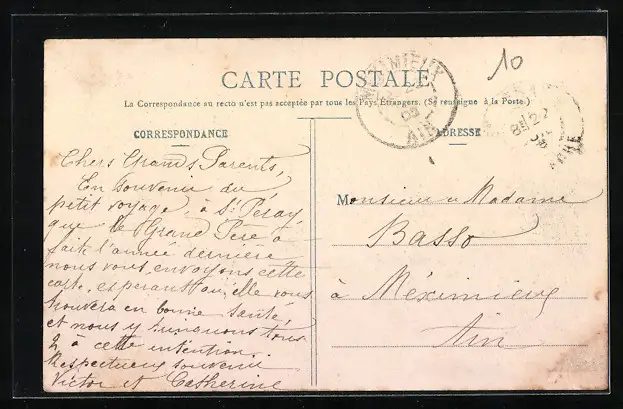 10
CARTE POSTALE
La Correspondance au recto n'est pas acceptée par tous les Pays Étrangers. (Se renseigne à la Poste.)
CORRESPONDANCE
Chers Grands Parents,
En Souvenir du
petit voyage, à St Péray,
que le Grand Père a
fait l'année dernière
nous vous envoyons cette
carte, espérant qu'elle vous
trouvera en bonne santé,
et nous y trinquons tous
2 à cette intention.
Respectueux souvenir
Victor et Catherine
MEXIMIEUX
AIN
ADRESSE
Monsieur et Madame
Basso
à Méximieux
Ain